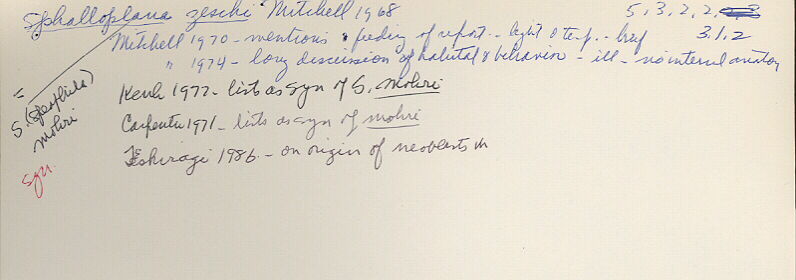 Sphalloplana zeschi Mitchell 1968 5, 3, 2, 2,
3.1.2
Mitchell 1970 - mentions feeding & report - light & temp. - brief
" 1974 - long discussion of habitat & behavior - ill - no internal anatomy
Kenk 1977 - lists as syn of S. mohri
Carpenter 1971 - lists as syn of mohri
Eshiragi 1986 - on origin of neoblasts in
= S. (Speophila) mohri
syn.